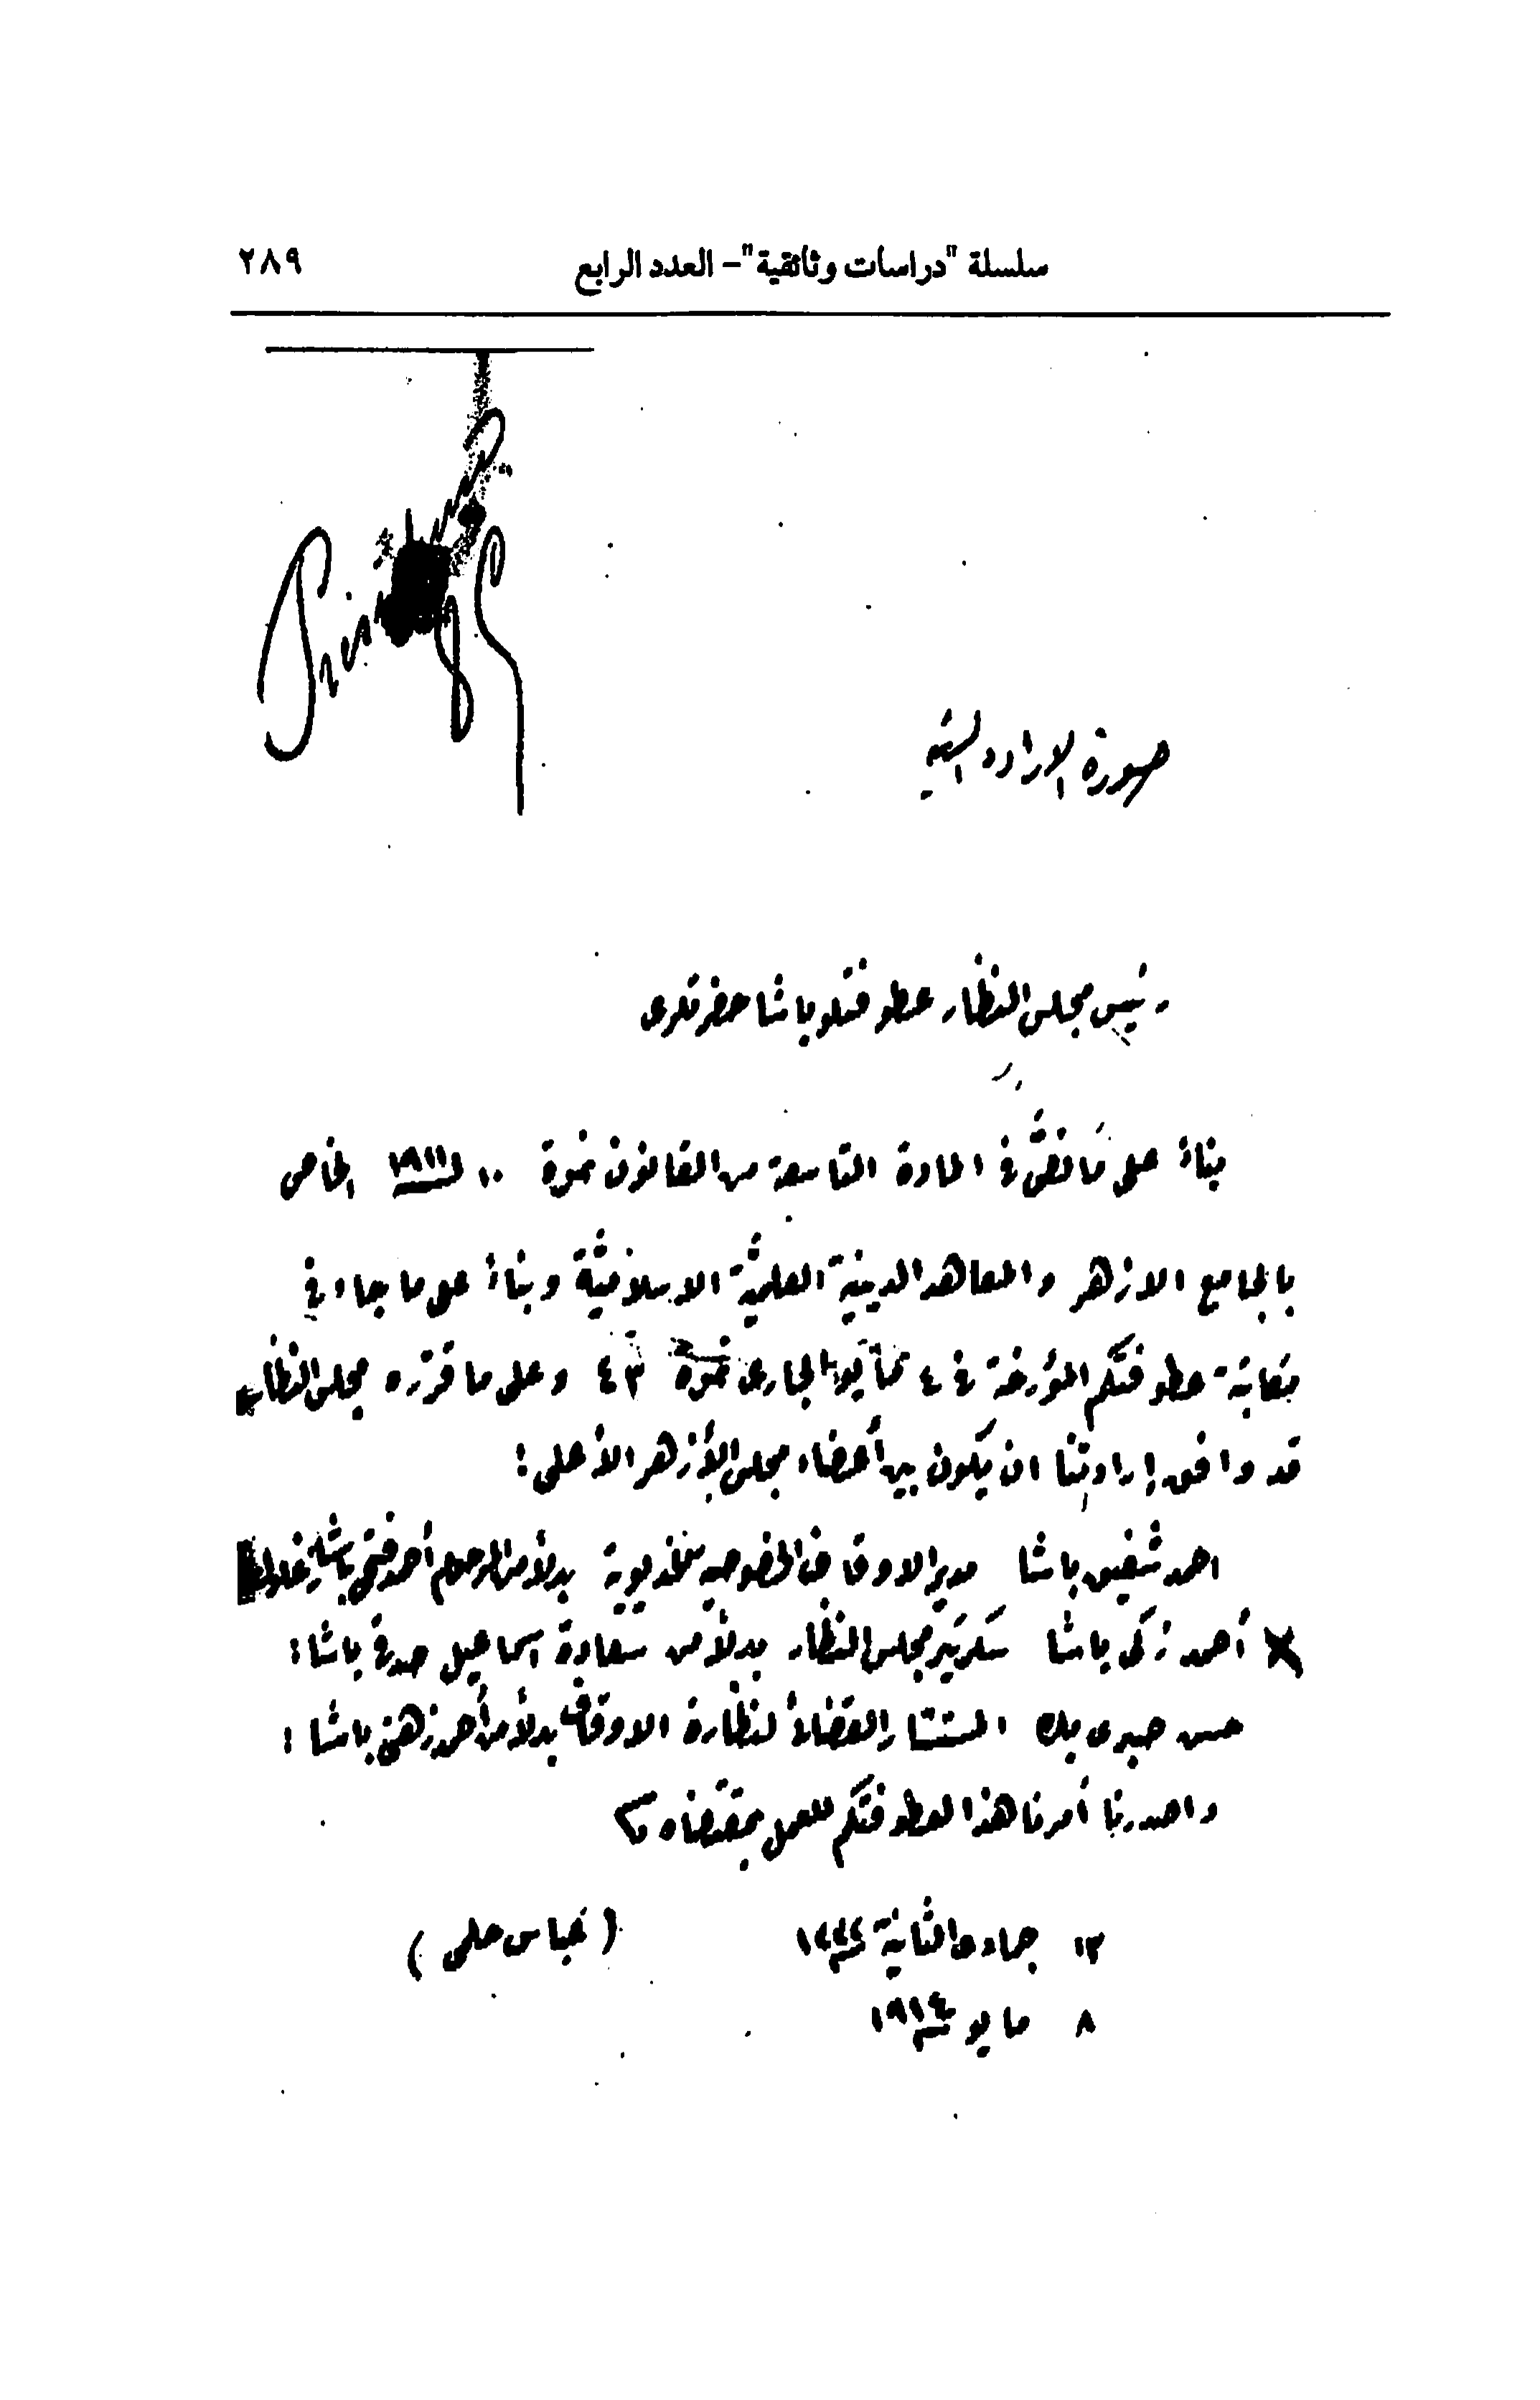 سلسلة "دراسات وثائقية"– العدد الرابع ٢٨٩
صورة الإرادة السنية
رئيس مجلس النظار عطوفتلو باشا حضرتلرى
بناءً على ما نُصَّ فى المادة التاسعة من القانون نمرة ١٠ لسنة ١٩١١ الخاص
بالجامع الازهر والمعاهد الدينية العلمية الاسلامية وبناءً على ما جاء فى
كتابة عطوفتكم المؤرخة فى ٤ مايو الجارى نمرة ٤٣ وعلى ما قرره مجلس النظار
قد وافق إرادتنا ان يكون بين أعضاء مجلس الأزهر الأعلى :
احمد شفيق باشا مدير الاوقاف الخصوصية الخديوية بدلاً من المرحوم أحمد فتحى باشا زغلول
أحمد زكى باشا سكرتير مجلس النظار بدلاً من سعادة اسماعيل صدقى باشا :
حسن صبرى بك المستشار القضائى لنظارة الاوقاف بدلاً من أحمد زهنى باشا :
واصدرنا أمرنا هذا لعطوفتكم للعمل بمقتضاه
١٣ جمادى الثانية ١٣٣٢ ( عباس حلمى )
٨ مايو ١٩١٤